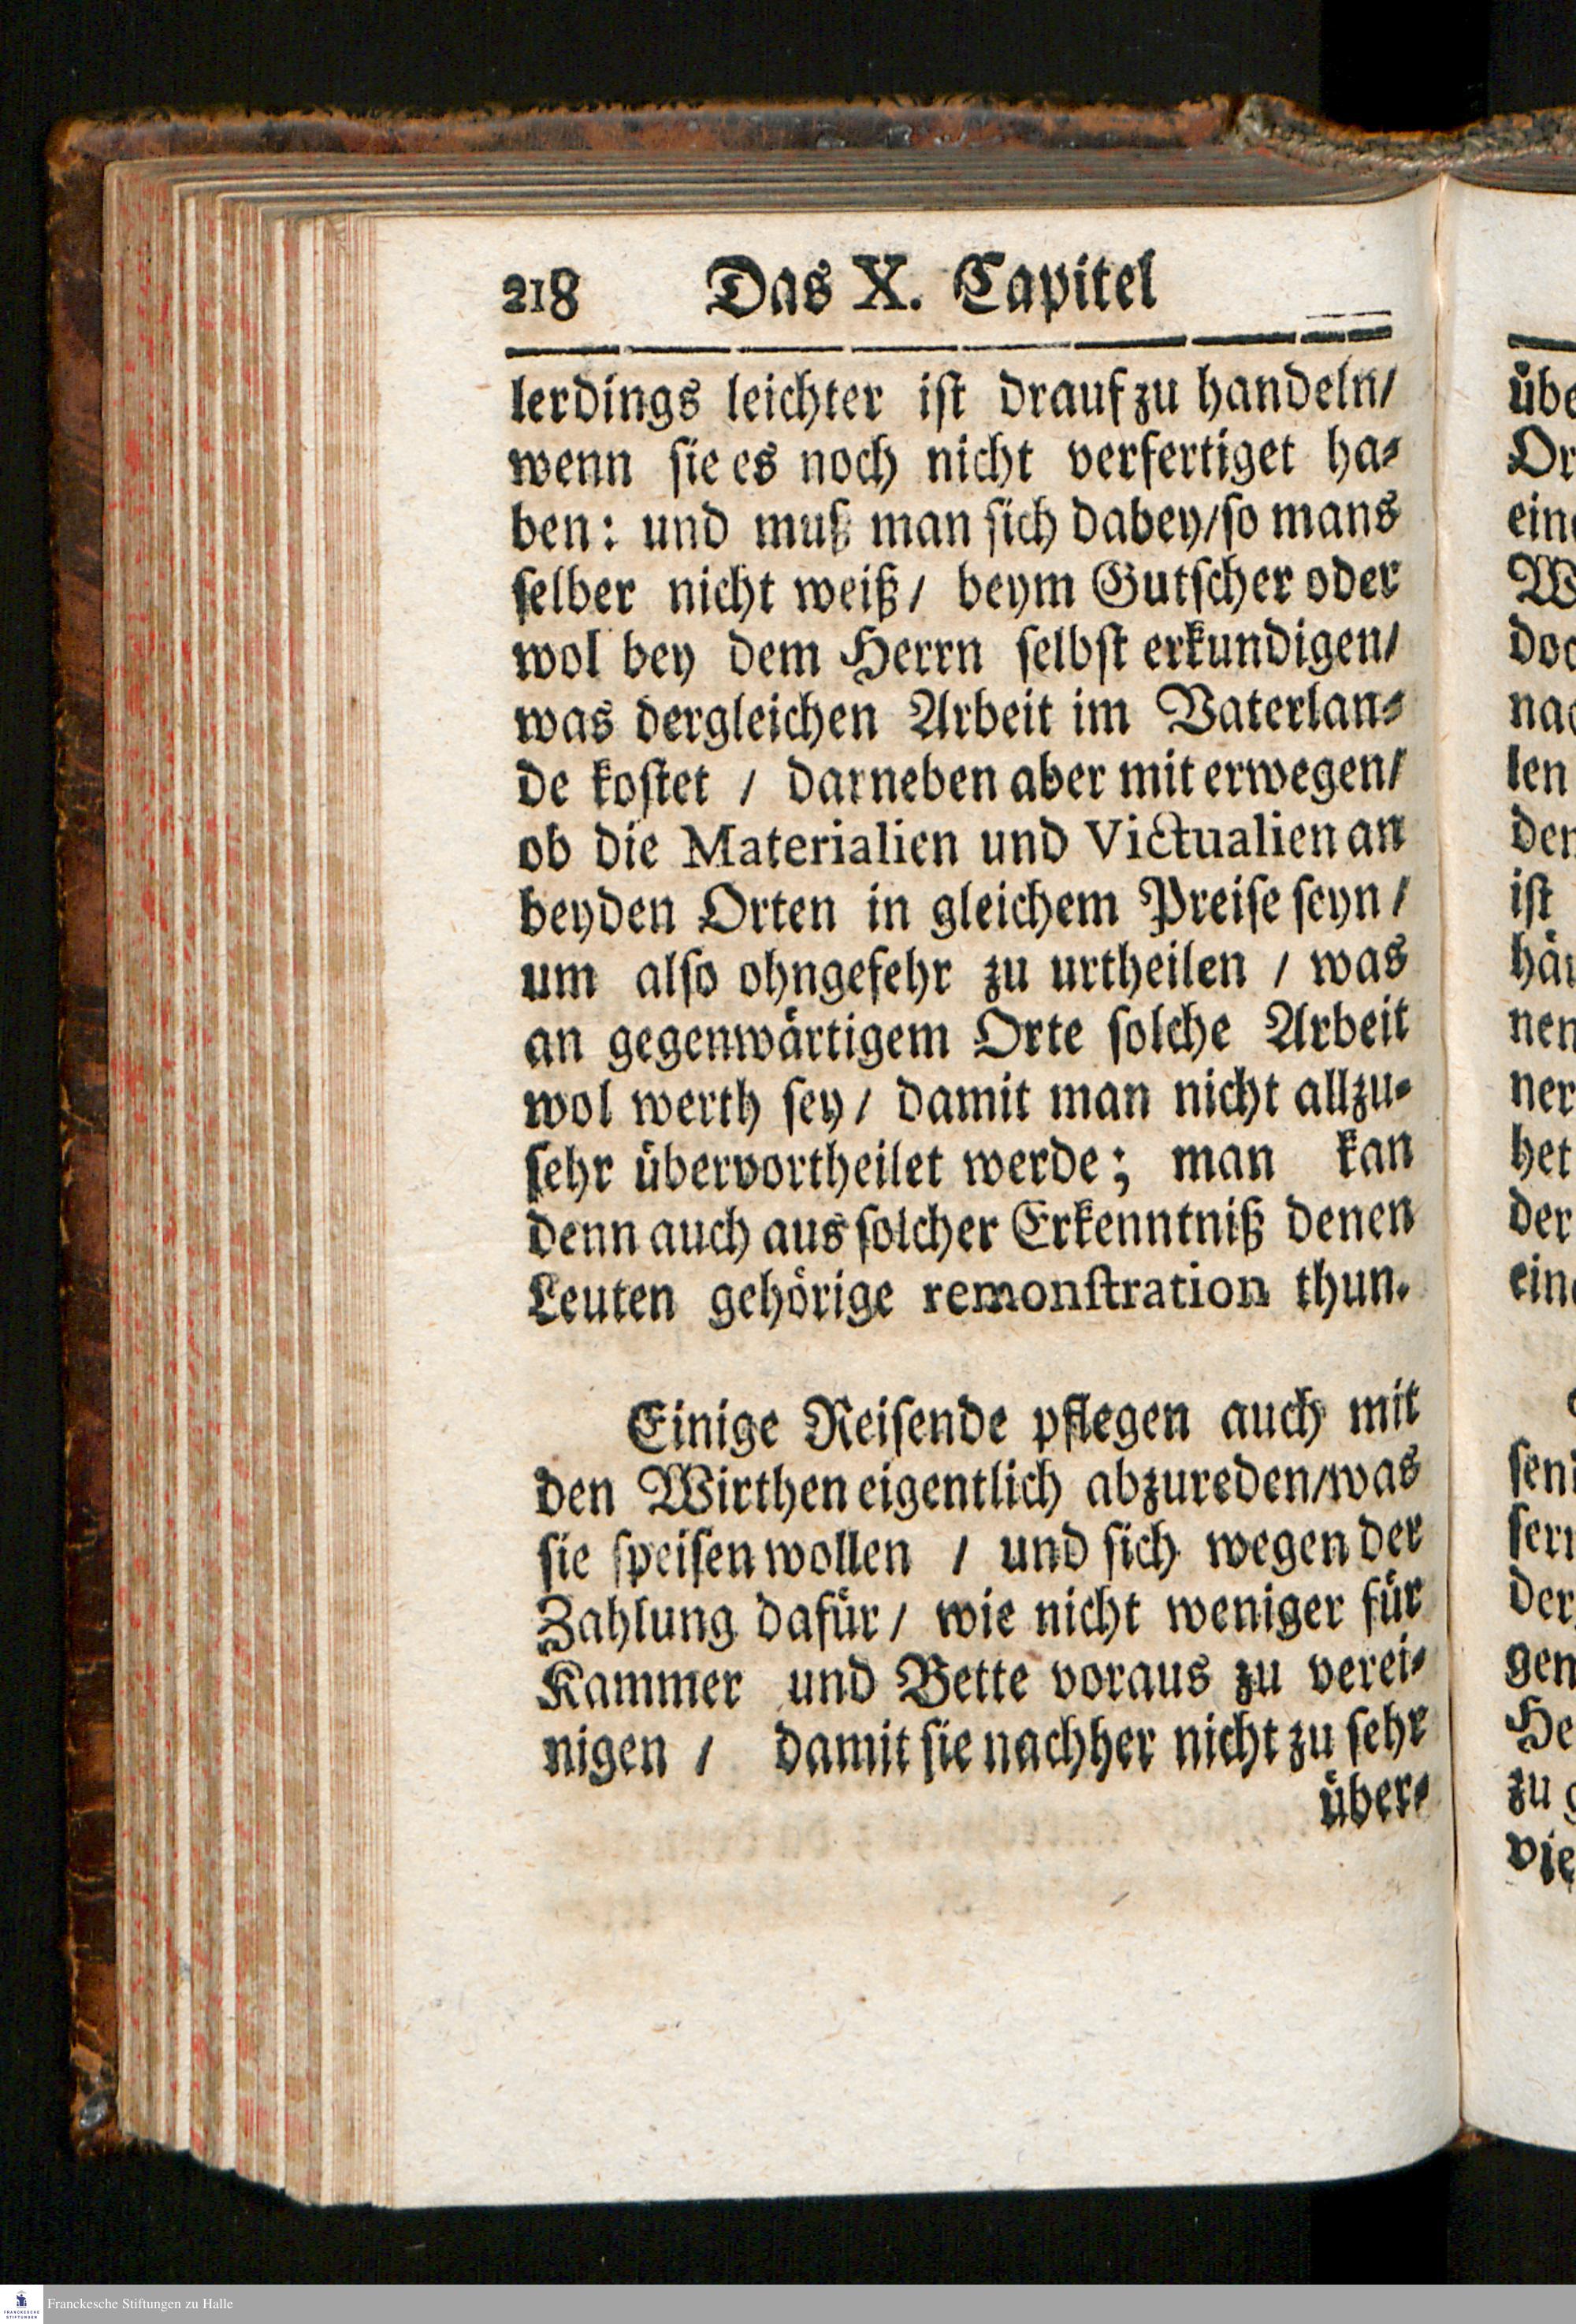 218 Das X. Capitel
lerdings leichter iſt drauf zu handeln/
wenn ſie es noch nicht verfertiget ha⸗
ben: und muß man ſich dabey/ſo mans
ſelber nicht weiß/ beym Gutſcher oder
wol bey dem Herrn ſelbſt erkundigen/
was dergleichen Arbeit im Vaterlan⸗
de koſtet / darneben aber mit erwegen/
ob die Materialien und Victualien an
beyden Orten in gleichem Preiſe ſeyn /
um alſo ohngefehr zu urtheilen / was
an gegenwärtigem Orte ſolche Arbeit
wol werth ſey/ damit man nicht allzu⸗
ſehr übervortheilet werde; man kan
denn auch aus ſolcher Erkenntniß denen
Leuten gehörige remonſtration thun.
Einige Reiſende pflegen auch mit
den Wirthen eigentlich abzureden/was
ſie ſpeiſen wollen / und ſich wegen der
Zahlung dafür/ wie nicht weniger für
Kammer und Bette voraus zu verei⸗
nigen / damit ſie nachher nicht zu ſehr
über⸗
Franckesche Stiftungen zu Halle